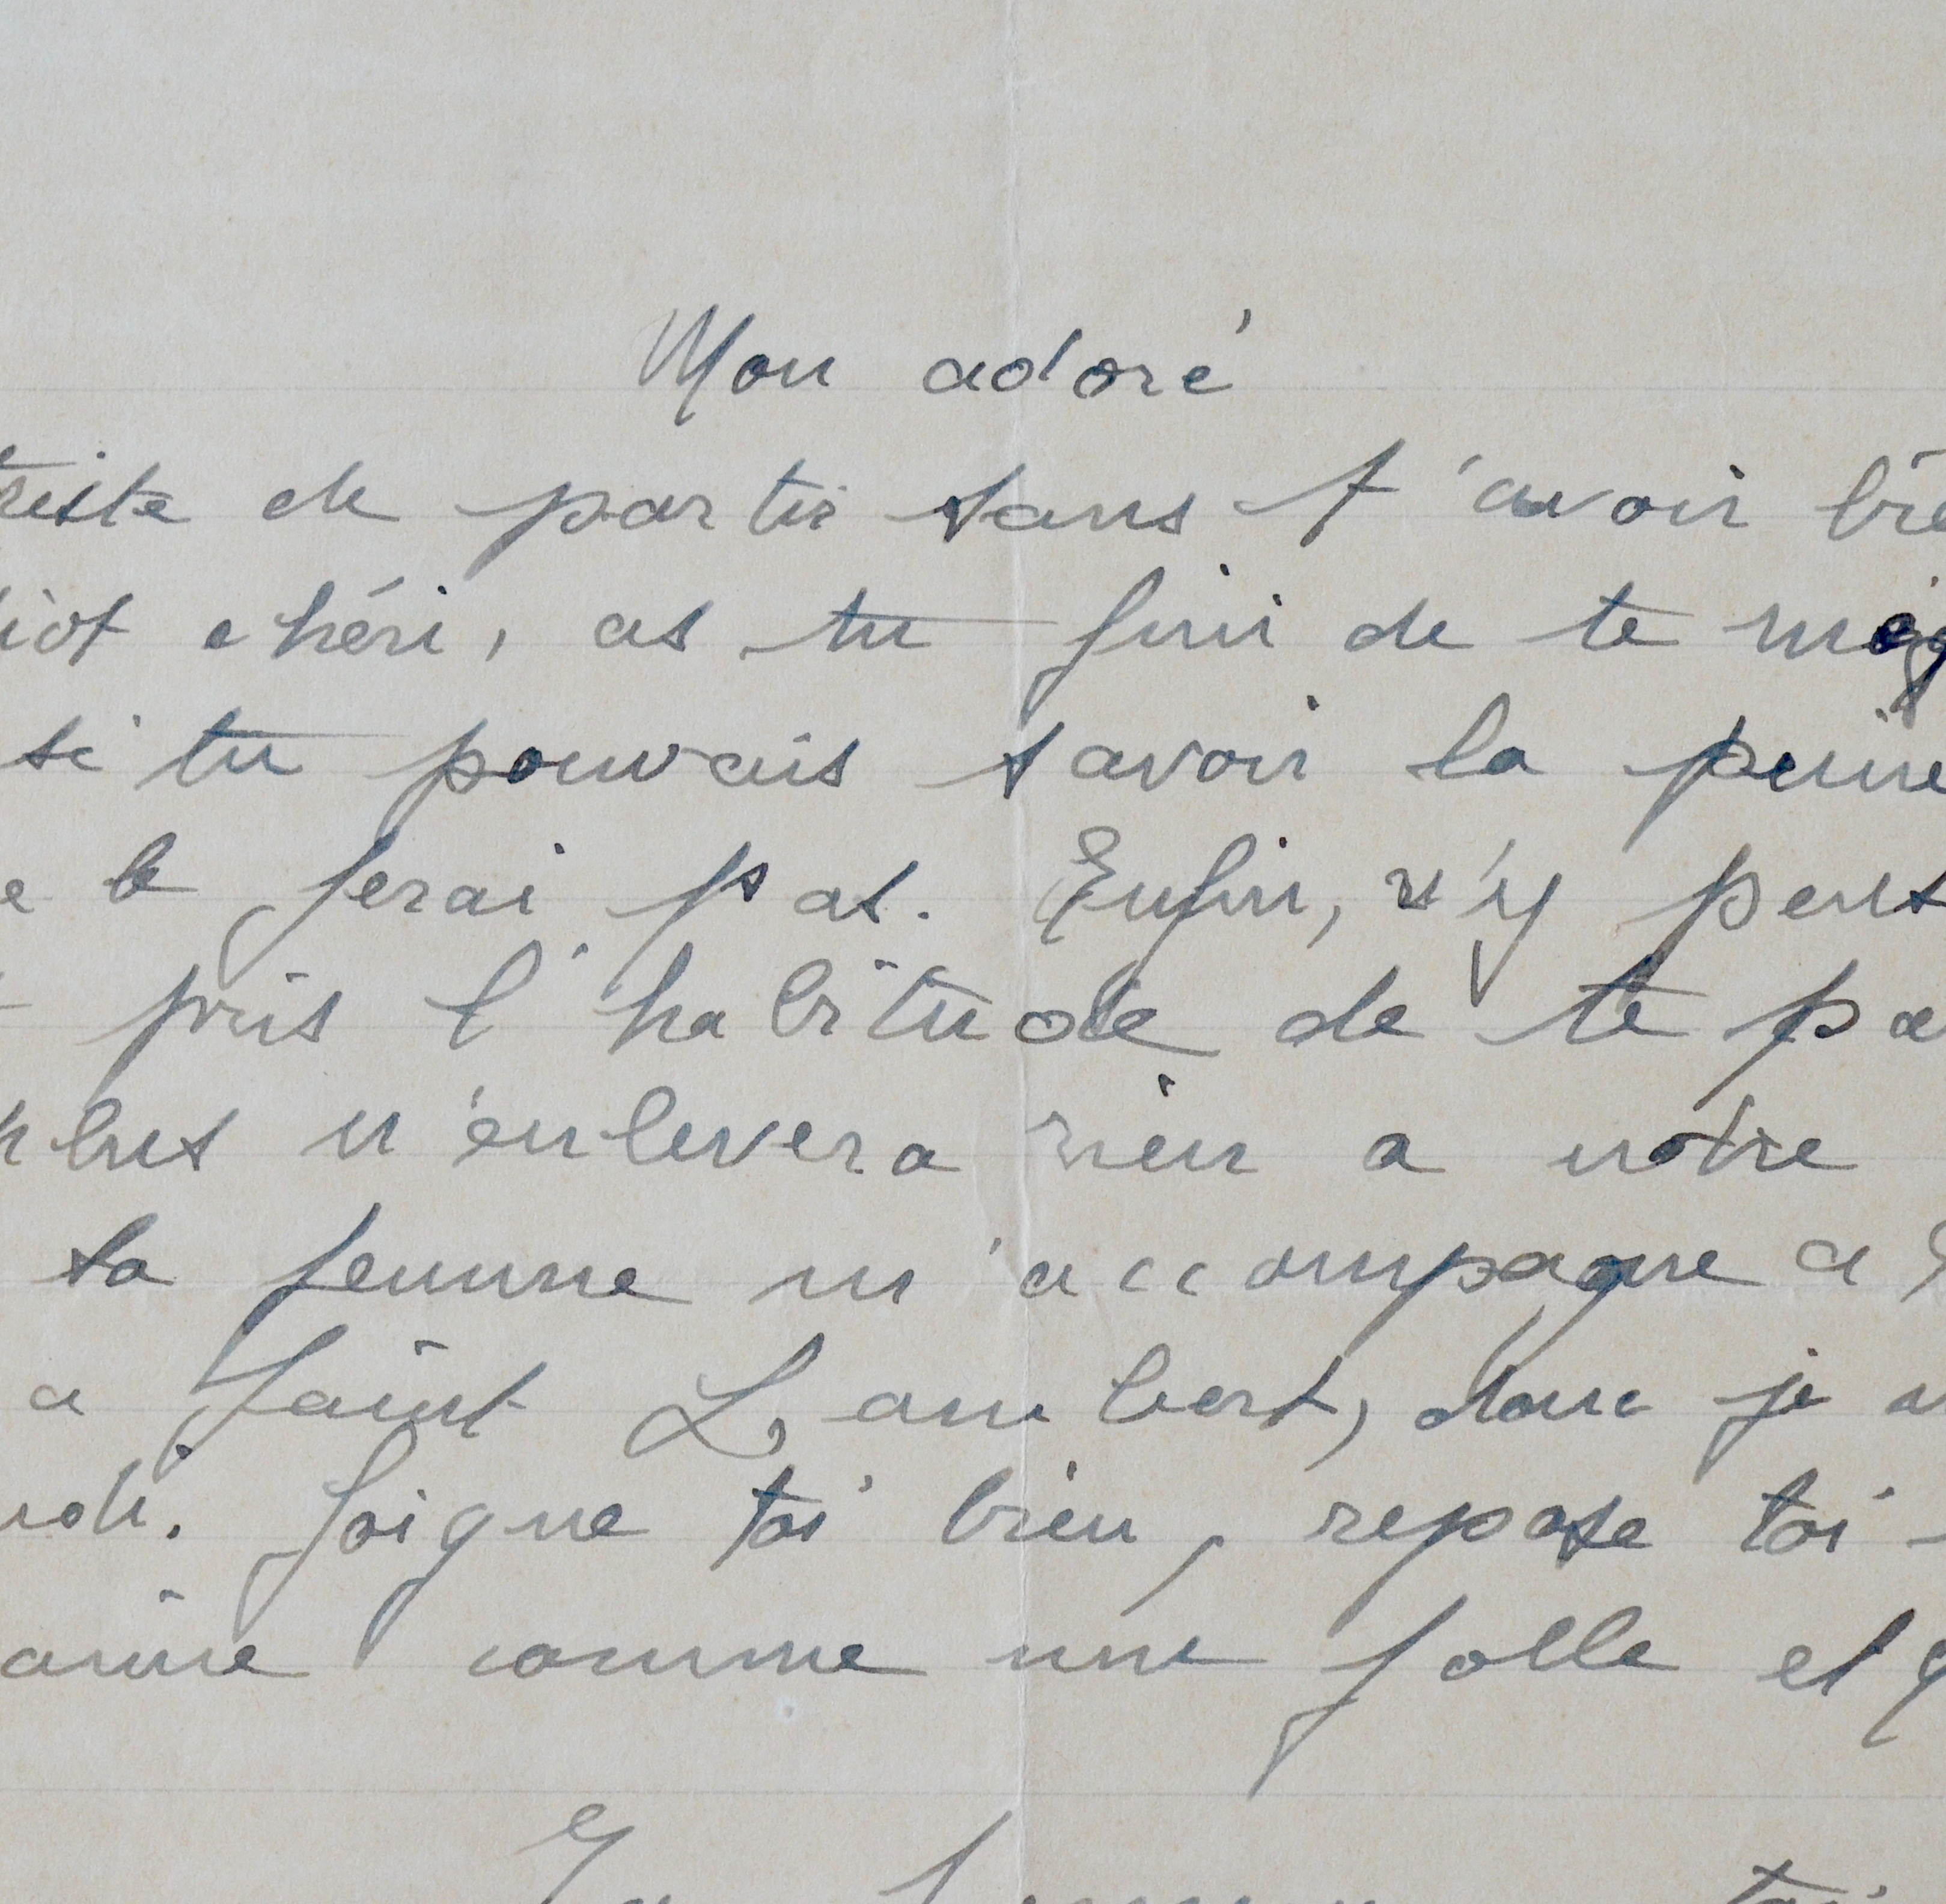 Mon adoré
triste de partir sans t'avoir
chéri, as tu fini de te
si tu pouvais savoir la peine
le ferai pas. Enfin, n'y pens
pris l'habitude de te pa
plus n'enlevera rien a notre
ta femme m'accompagne a
a Saint Lambert, donc je
Soigne toi bien, repose toi
comme une folle et q